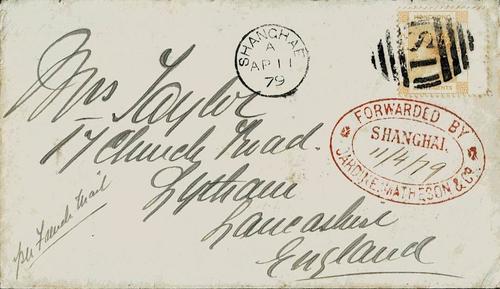 SHANGHAE
A
AP 11
79
Mrs Taylor
17 Church Road.
Lytham
Lancashire
England
per French Mail
FORWARDED BY
SHANGHAI.
11/4/79
JARDINE, MATHESON & Co.
CENTS